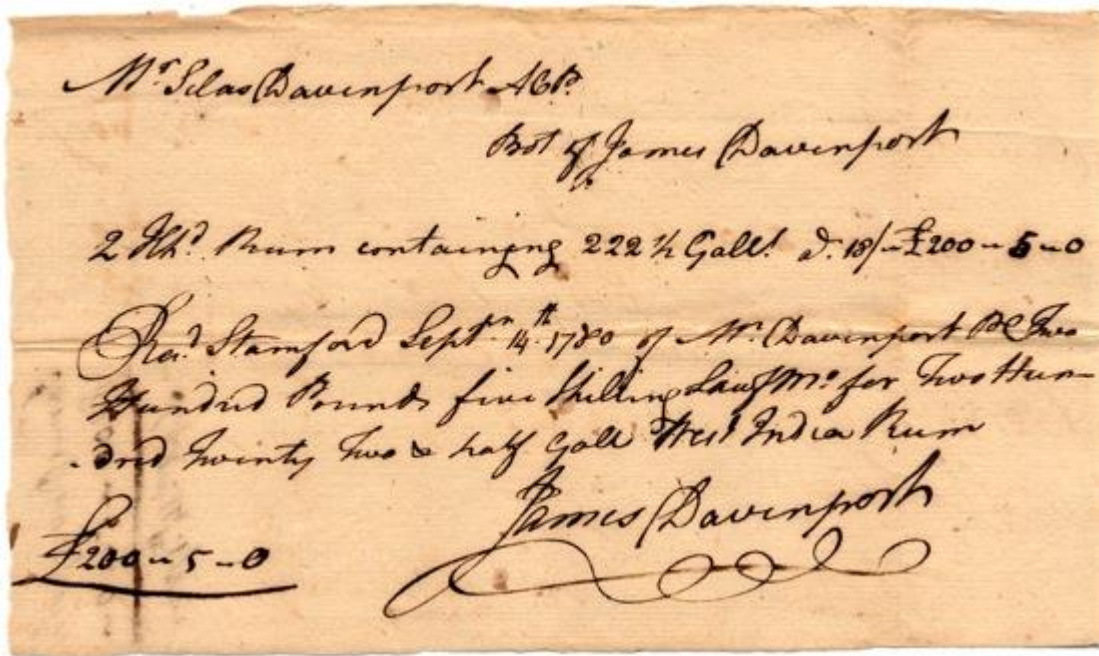 Mr. Silas Davenport ACP.
Bot of James Davenport
2 Hhd. Rum containgng 222 ½ Galls. @ 18/ - £200 - 5 - 0
Recd. Stamford Septm. 14th. 1780 of Mr. Davenport Two
Hundrid Pounds five Shilling Lawf Mo. for Two Hun-
-drid Twinty Two & half Galls West India Rum
James Davenport
£200 - 5 - 0